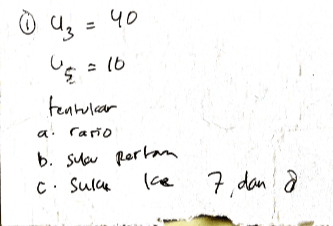 ① U₃ = 40
U₅ = 10
tentukan
a. rasio
b. suku pertam
c. suku ke 7, dan 8